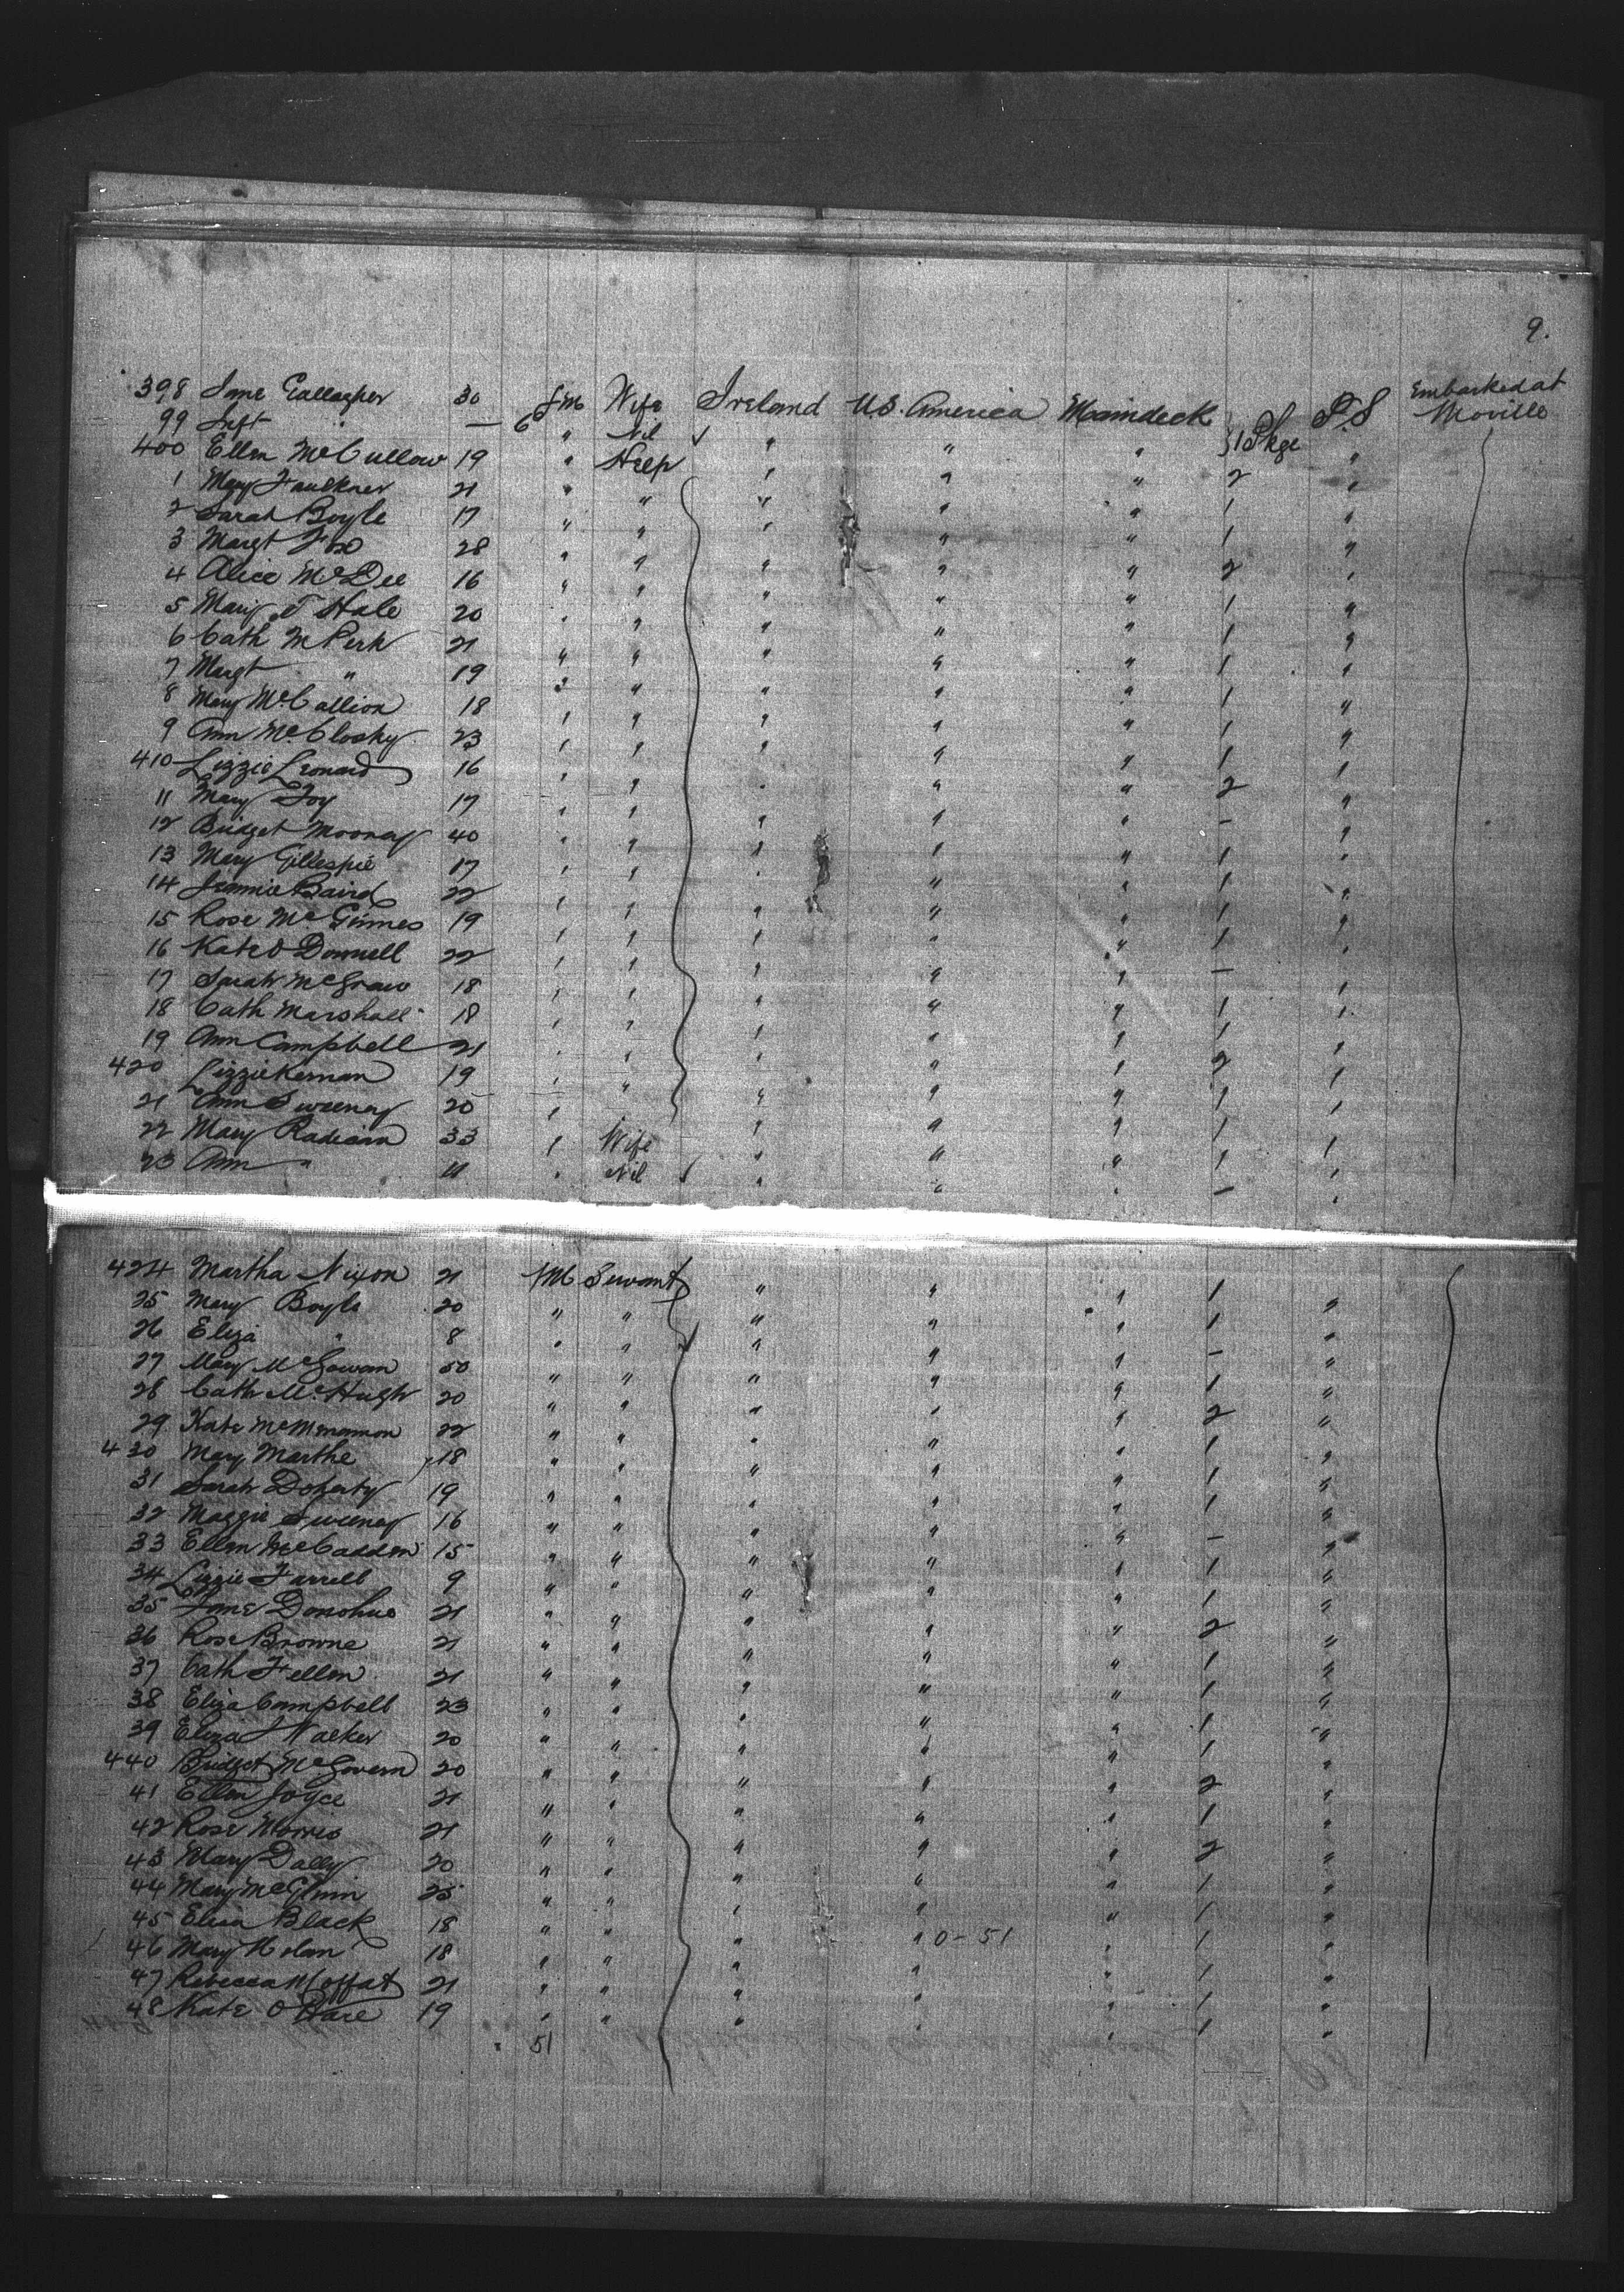 9.
398 Jane Gallagher 30 fm Wife Ireland U.S. America Maindeck }1 Pkge P.S Embarked at Moville
99 Inft " — 6 " Nil " " " "
400 Ellen McCullow 19 " Help " " " 2 "
1 Mary Faulkner 21 " " " " " 1 "
2 Sarah Boyle 17 " " " " " 1 "
3 Margt Fox 28 " " " " " 2 "
4 Alice McDee 16 " " " " " 1 "
5 Mary J Hale 20 " " " " " 1 "
6 Cath McPeck 21 " " " " " 1 "
7 Margt " 19 " " " " " 1 "
8 Mary McCallion 18 " " " " " 1 "
9 Ann McClosky 23 " " " " " 1 "
410 Lizzie Leonard 16 " " " " " 2 "
11 Mary Foy 17 " " " " " — "
12 Bridget Mooney 40 " " " " " 1 "
13 Mary Gillespie 17 " " " " " 1 "
14 Jennie Baird 22 " " " " " 1 "
15 Rose McGinnes 19 " " " " " 1 "
16 Kate O Donnell 22 " " " " " — "
17 Sarah McGraw 18 " " " " " 1 "
18 Cath Marshall 18 " " " " " 1 "
19 Ann Campbell 21 " " " " " 2 "
420 Lizzie Kernan 19 " " " " " 1 "
21 Ann Sweeney 20 " " " " " 1 "
22 Mary 33 " Wife " " " 1 "
23 Ann " 11 " Nil " " " — "
424 Martha Nixon 21 fm Servant " " " 1 "
25 Mary Boyle 20 " " " " " 1 "
26 Eliza " 8 " " " " " — "
27 Mary McGowan 50 " " " " " 1 "
28 Cath McHugh 20 " " " " " 2 "
29 Kate McMenamon 22 " " " " " 1 "
430 Mary Marthe 18 " " " " " 1 "
31 Sarah Doherty 19 " " " " " 1 "
32 Maggie Sweeney 16 " " " " " — "
33 Ellen McCadden 15 " " " " " 1 "
34 Lizzie Farrell 9 " " " " " 1 "
35 Jane Donohue 21 " " " " " 2 "
36 Rose Browne 21 " " " " " 1 "
37 Cath Fellen 21 " " " " " 1 "
38 Eliza Campbell 23 " " " " " 1 "
39 Eliza Walker 20 " " " " " 1 "
440 Bridget McGovern 20 " " " " " 2 "
41 Ellen Joyce 21 " " " " " 1 "
42 Rose Morris 21 " " " " " 2 "
43 Mary Dally 20 " " " " " 1 "
44 Mary McGlinn 25 " " " " " 1 "
45 Eliza Black 18 " " " " 0-51 " 1 "
46 Mary Nolan 18 " " " " " 1 "
47 Rebecca Moffat 21 " " " " " 1 "
48 Kate O Hare 19 " " " " " 1 "
51